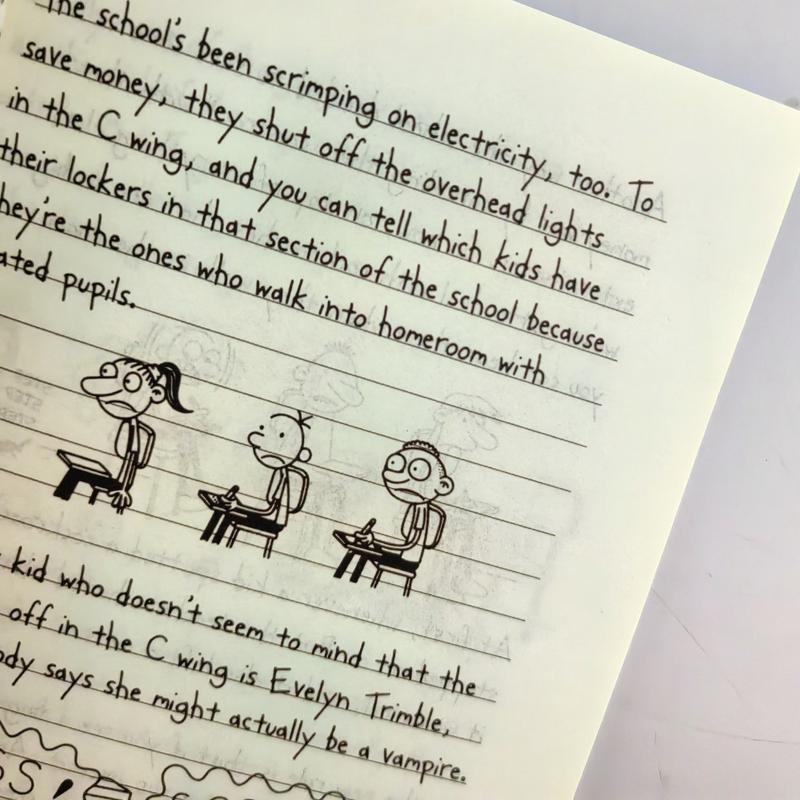 The school's been scrimping on electricity, too. To
save money, they shut off the overhead lights
in the C wing, and you can tell which kids have
their lockers in that section of the school because
they're the ones who walk into homeroom with
pupils.
kid who doesn't seem to mind that the
off in the C wing is Evelyn Trimble,
says she might actually be a vampire.